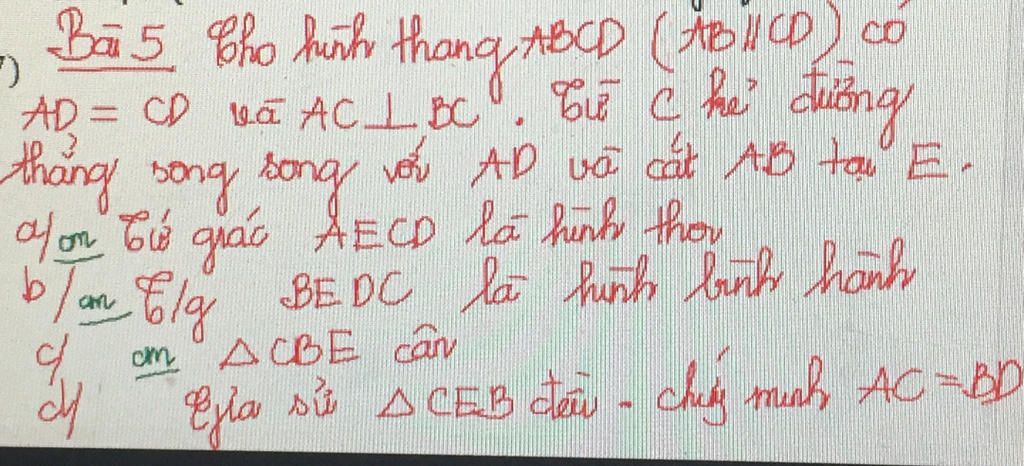 Bài 5 Cho hình thang ABCD (AB//CD) có
AD = CD và AC ⊥ BC. Từ C kẻ đường
thẳng song song với AD và cắt AB tại E.
a/ cm Tứ giác AECD là hình thoi
b/ cm T/g BEDC là hình bình hành
c/ cm △CBE cân
d/ Giả sử △CEB đều - chứng minh AC = BD